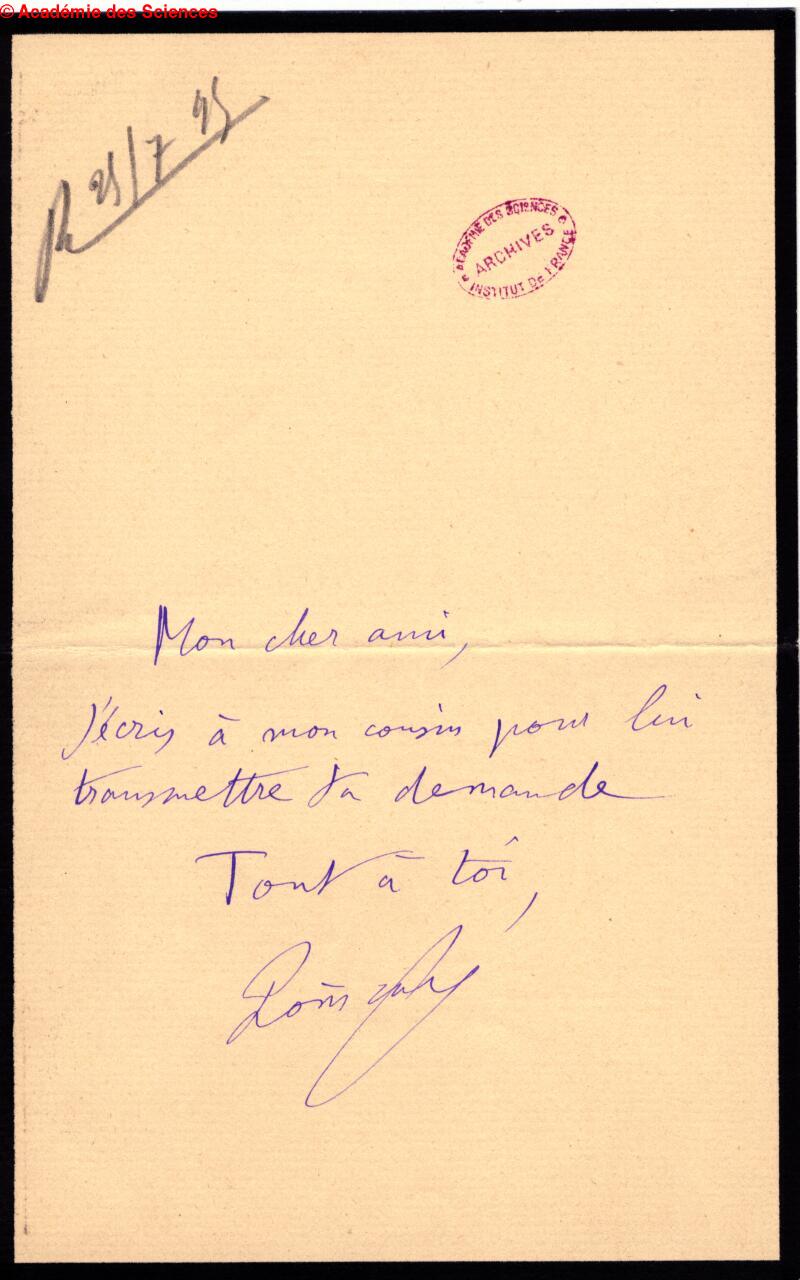 © Académie des Sciences
R 25/7 95
ACADÉMIE DES SCIENCES
ARCHIVES
INSTITUT DE FRANCE
Mon cher ami,
J'écris à mon cousin pour lui
transmettre ta demande
Tout à toi,
Poincaré